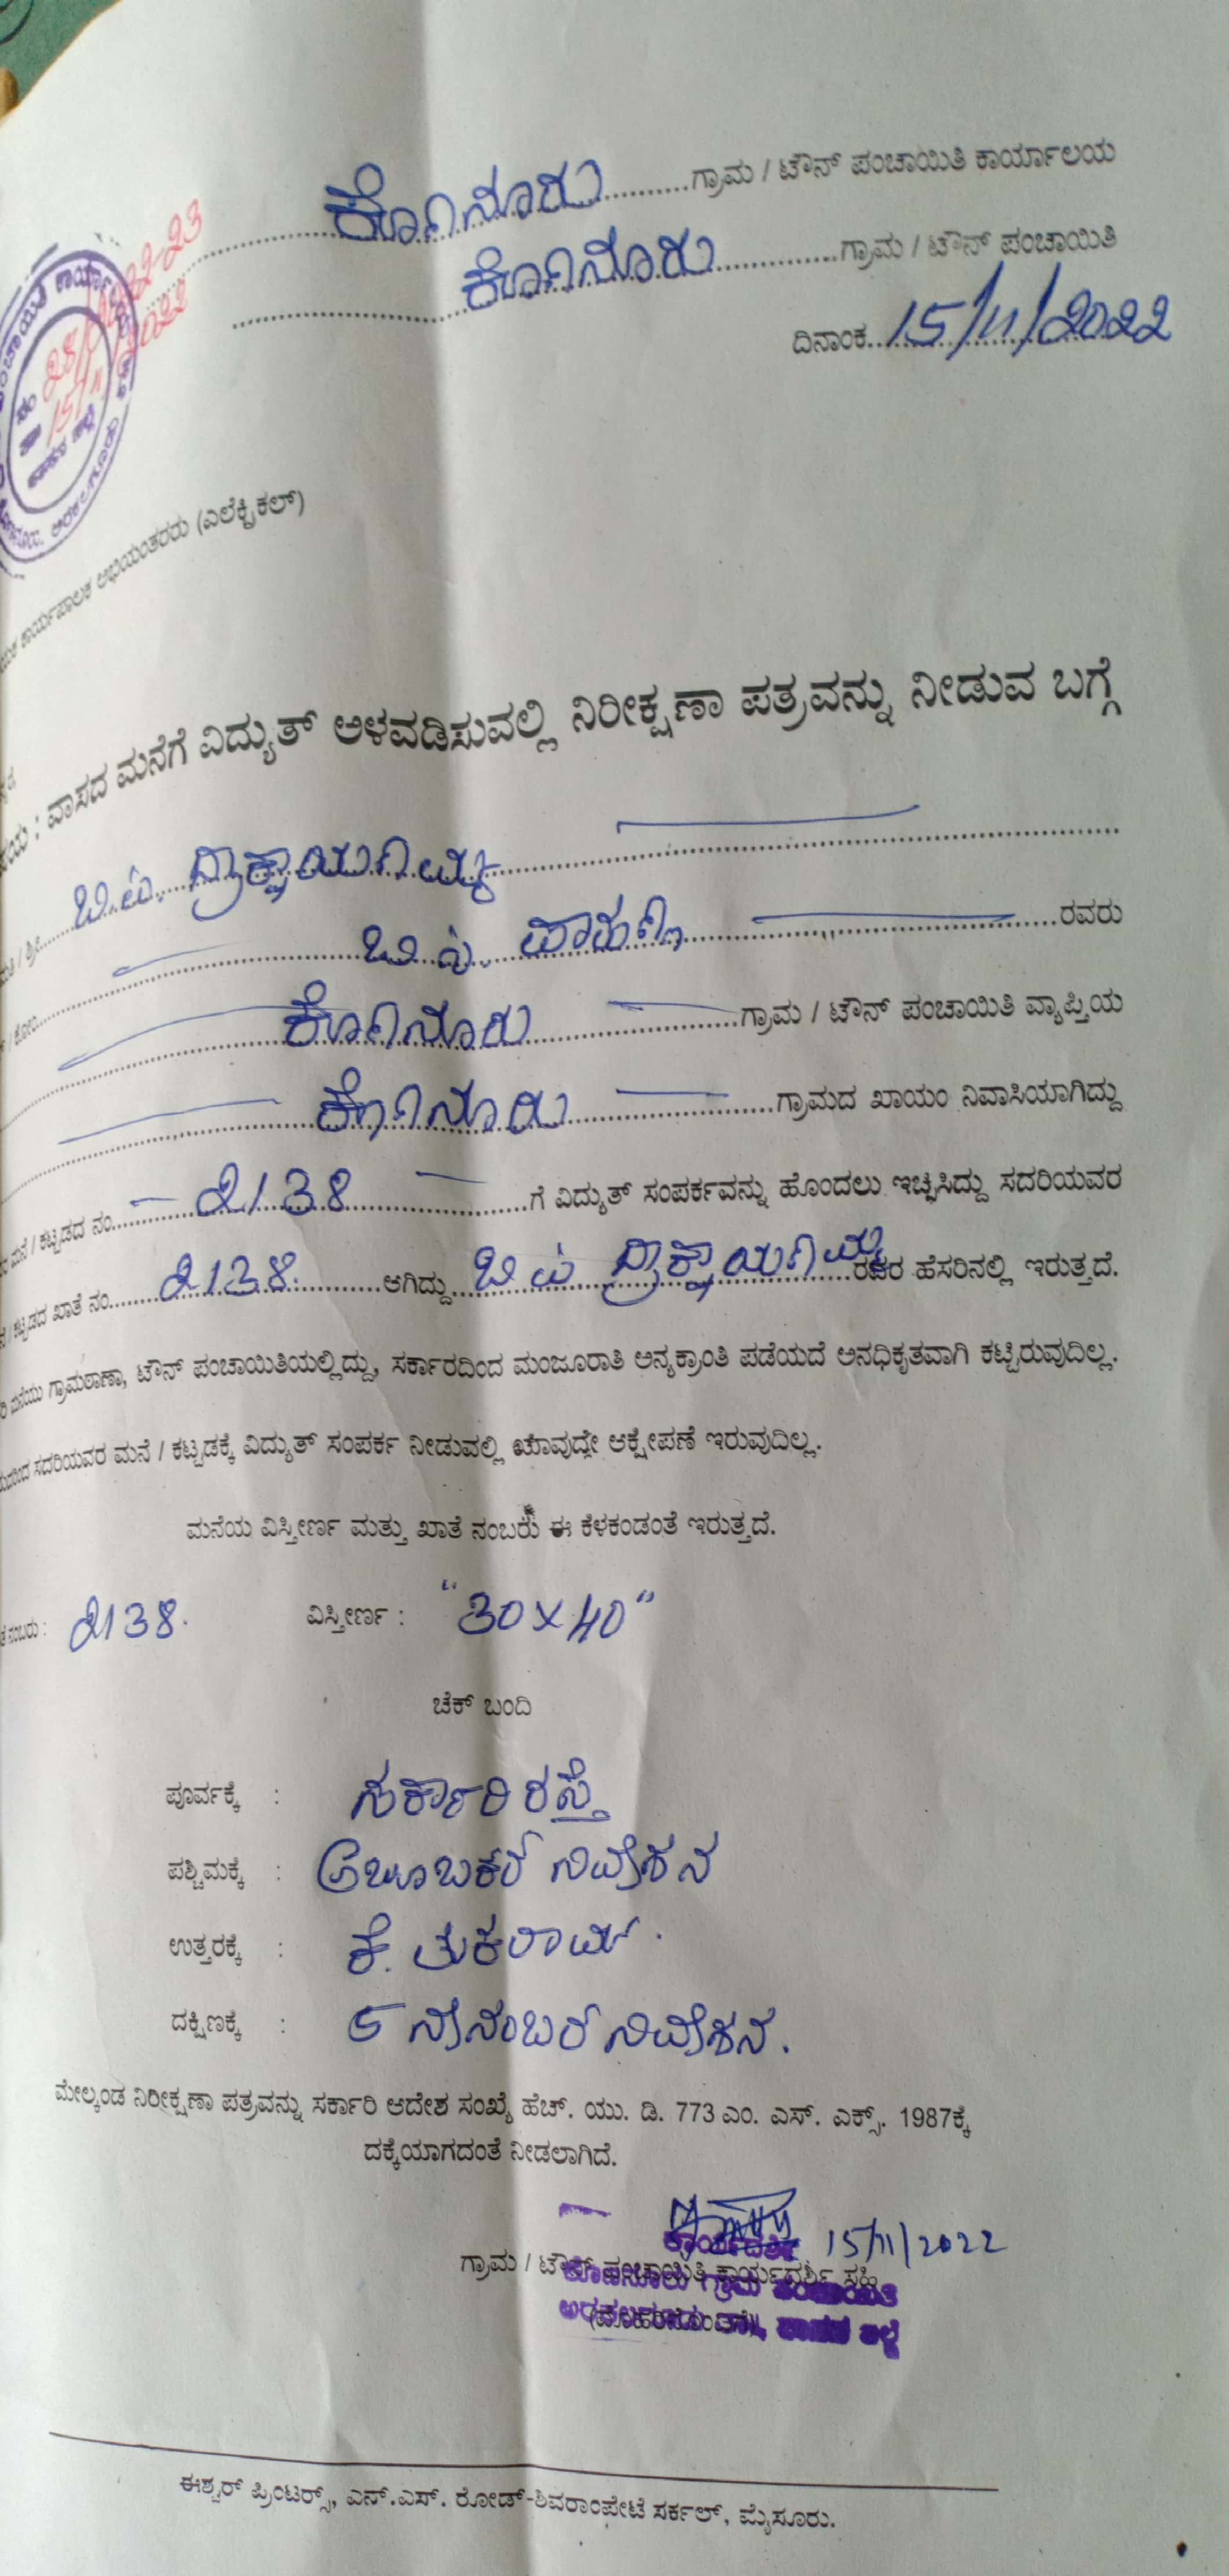 ಕೊಣನೂರು ಗ್ರಾಮ / ಟೌನ್ ಪಂಚಾಯಿತಿ ಕಾರ್ಯಾಲಯ
ಕೊಣನೂರು ಗ್ರಾಮ / ಟೌನ್ ಪಂಚಾಯಿತಿ
ದಿನಾಂಕ 15/11/2022
ಕಾರ್ಯಪಾಲಕ ಅಭಿಯಂತರರು (ಎಲೆಕ್ಟ್ರಿಕಲ್)
: ವಾಸದ ಮನೆಗೆ ವಿದ್ಯುತ್ ಅಳವಡಿಸುವಲ್ಲಿ ನಿರೀಕ್ಷಣಾ ಪತ್ರವನ್ನು ನೀಡುವ ಬಗ್ಗೆ
/ ಶ್ರೀ ದ್ರಾಕ್ಷಾಯಣಮ್ಮ
/ ಕೋಂ ರವರು
ಕೊಣನೂರು ಗ್ರಾಮ / ಟೌನ್ ಪಂಚಾಯಿತಿ ವ್ಯಾಪ್ತಿಯ
ಕೊಣನೂರು ಗ್ರಾಮದ ಖಾಯಂ ನಿವಾಸಿಯಾಗಿದ್ದು
ಮನೆ / ಕಟ್ಟಡದ ನಂ 2138 ಗೆ ವಿದ್ಯುತ್ ಸಂಪರ್ಕವನ್ನು ಹೊಂದಲು ಇಚ್ಛಿಸಿದ್ದು ಸದರಿಯವರ
/ ಕಟ್ಟಡದ ಖಾತೆ ನಂ 2138. ಆಗಿದ್ದು ದ್ರಾಕ್ಷಾಯಣಮ್ಮ ರವರ ಹೆಸರಿನಲ್ಲಿ ಇರುತ್ತದೆ.
ಮನೆಯು ಗ್ರಾಮಠಾಣಾ, ಟೌನ್ ಪಂಚಾಯಿತಿಯಲ್ಲಿದ್ದು, ಸರ್ಕಾರದಿಂದ ಮಂಜೂರಾತಿ ಅನ್ಯಕ್ರಾಂತಿ ಪಡೆಯದೆ ಅನಧಿಕೃತವಾಗಿ ಕಟ್ಟಿರುವುದಿಲ್ಲ.
ಸದರಿಯವರ ಮನೆ / ಕಟ್ಟಡಕ್ಕೆ ವಿದ್ಯುತ್ ಸಂಪರ್ಕ ನೀಡುವಲ್ಲಿ ಯಾವುದೇ ಆಕ್ಷೇಪಣೆ ಇರುವುದಿಲ್ಲ.
ಮನೆಯ ವಿಸ್ತೀರ್ಣ ಮತ್ತು ಖಾತೆ ನಂಬರು ಈ ಕೆಳಕಂಡಂತೆ ಇರುತ್ತದೆ.
ನಂಬರು : 2138. ವಿಸ್ತೀರ್ಣ : "30x40"
ಚೆಕ್ ಬಂದಿ
ಪೂರ್ವಕ್ಕೆ : ಸರ್ಕಾರಿ ರಸ್ತೆ
ಪಶ್ಚಿಮಕ್ಕೆ : ಅಬೂಬಕರ್ ನಿವೇಶನ
ಉತ್ತರಕ್ಕೆ : ಕೆ. ತುಕರಾಮ್.
ದಕ್ಷಿಣಕ್ಕೆ : 5 ನೇ ನಂಬರ್ ನಿವೇಶನ.
ಮೇಲ್ಕಂಡ ನಿರೀಕ್ಷಣಾ ಪತ್ರವನ್ನು ಸರ್ಕಾರಿ ಆದೇಶ ಸಂಖ್ಯೆ ಹೆಚ್. ಯು. ಡಿ. 773 ಎಂ. ಎಸ್. ಎಕ್ಸ್. 1987ಕ್ಕೆ
ದಕ್ಕೆಯಾಗದಂತೆ ನೀಡಲಾಗಿದೆ.
15/11/2022
ಗ್ರಾಮ / ಟೌನ್ ಪಂಚಾಯಿತಿ ಕಾರ್ಯದರ್ಶಿ ಸಹಿ
(ಮೊಹರಿನೊಂದಿಗೆ)
ಈಶ್ವರ್ ಪ್ರಿಂಟರ್ಸ್, ಎನ್.ಎಸ್. ರೋಡ್-ಶಿವರಾಂಪೇಟೆ ಸರ್ಕಲ್, ಮೈಸೂರು.